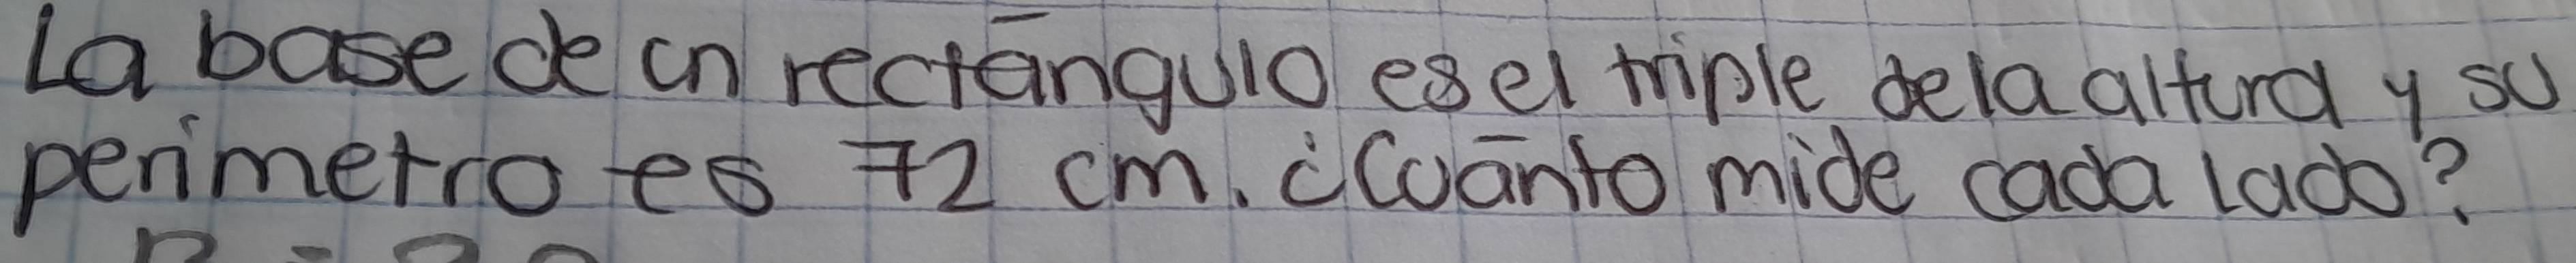 La base de un rectángulo es el triple de la altura y su
perímetro es 72 cm. ¿Cuánto mide cada lado?